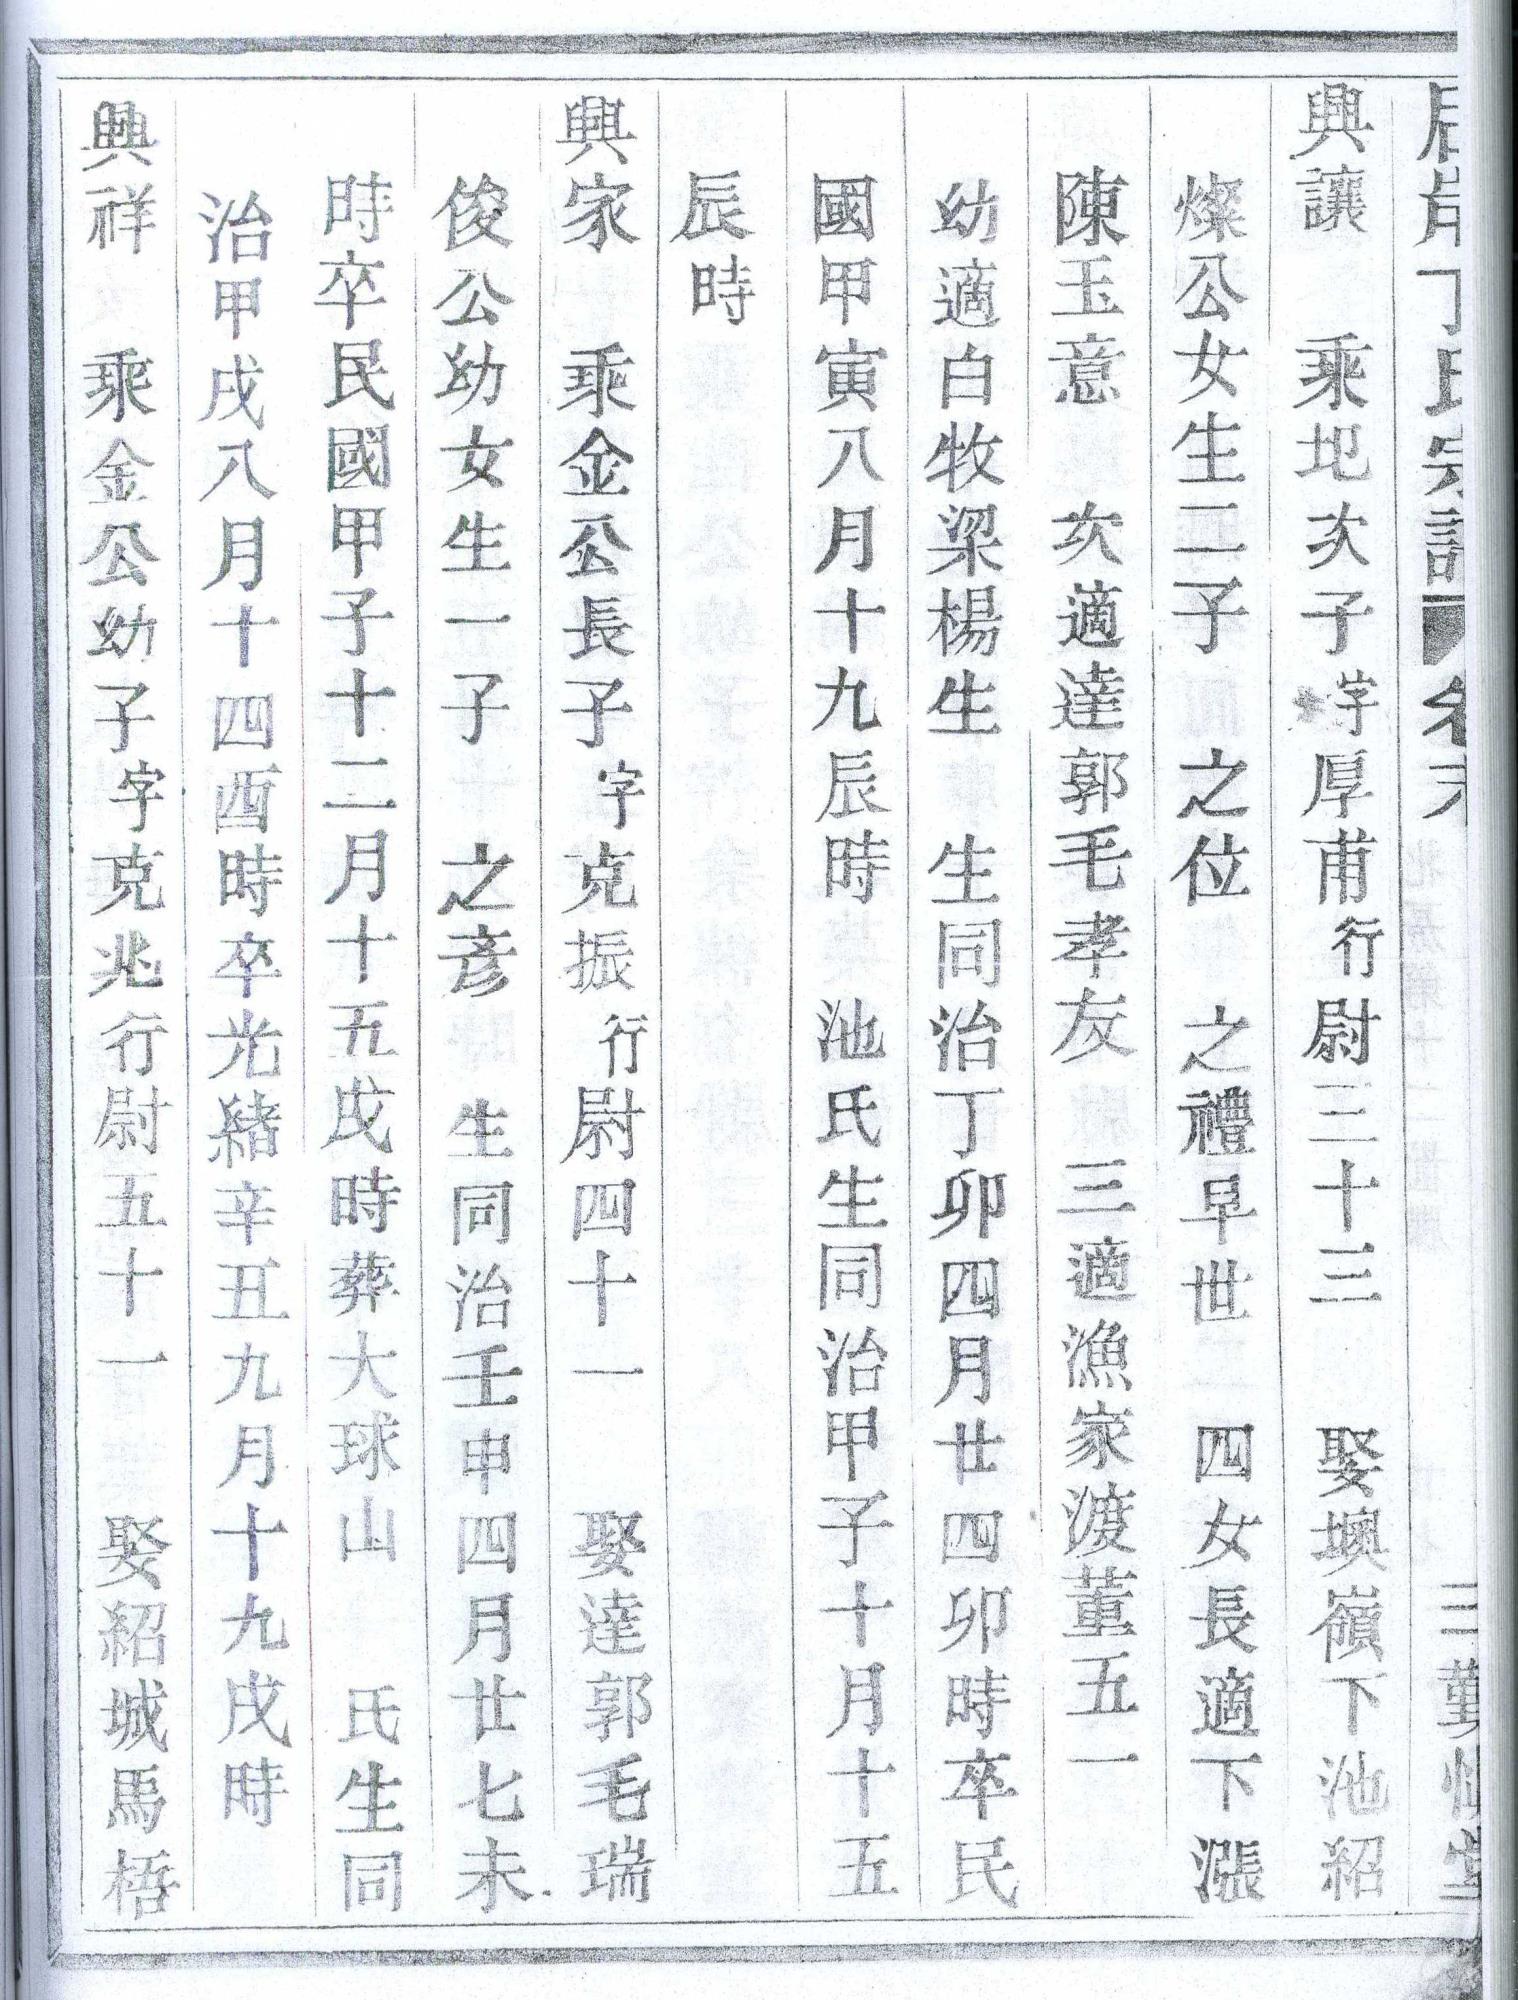 丁氏宗譜 卷 三 勤 堂
興讓 乘圯次子字厚甫行尉三十三 娶墺嶺下池紹
燦公女生二子 之位 之禮早世 四女長適下漲
陳玉意 次適達郭毛孝友 三適漁家渡董五一
幼適白牧梁楊生 生同治丁卯四月廿四卯時卒民
國甲寅八月十九辰時 池氏生同治甲子十月十五
辰時
興家 乘金公長子字克振行尉四十一 娶達郭毛瑞
俊公幼女生一子 之彥 生同治壬申四月廿七未
時卒民國甲子十二月十五戌時葬大球山 氏生同
治甲戌八月十四酉時卒光緒辛丑九月十九戌時
興祥 乘金公幼子字克兆行尉五十一 娶紹城馬梧